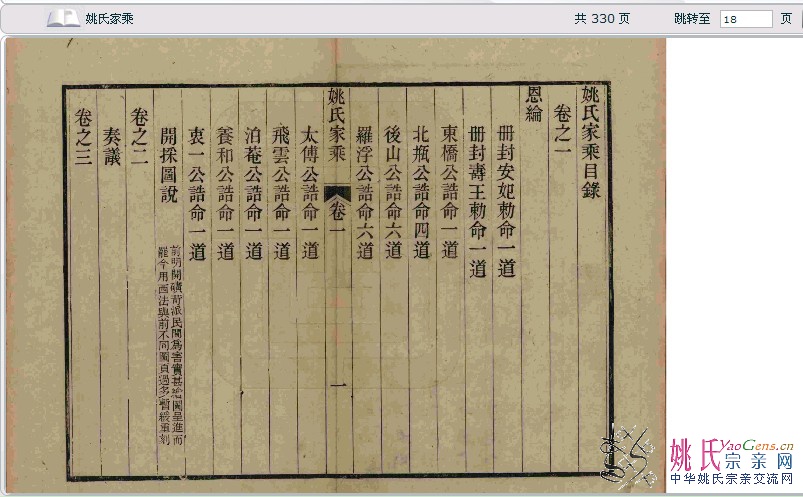 姚氏家乘
共 330 页
跳转至 18 页
姚氏家乘目錄
卷之一
恩綸
冊封安妃勅命一道
冊封壽王勅命一道
東橋公誥命一道
北瓶公誥命四道
後山公誥命六道
羅浮公誥命六道
姚氏家乘 卷一 一
太傅公誥命一道
飛雲公誥命一道
泊菴公誥命一道
養和公誥命一道
衷一公誥命一道
開採圖說
前明開礦苛派民間爲害實甚繪圖呈進而
罷今用西法與前不同圖頁過多暫緩重刻
卷之二
奏議
卷之三
姚氏宗亲网
YaoGens.cn
中华姚氏宗亲交流网